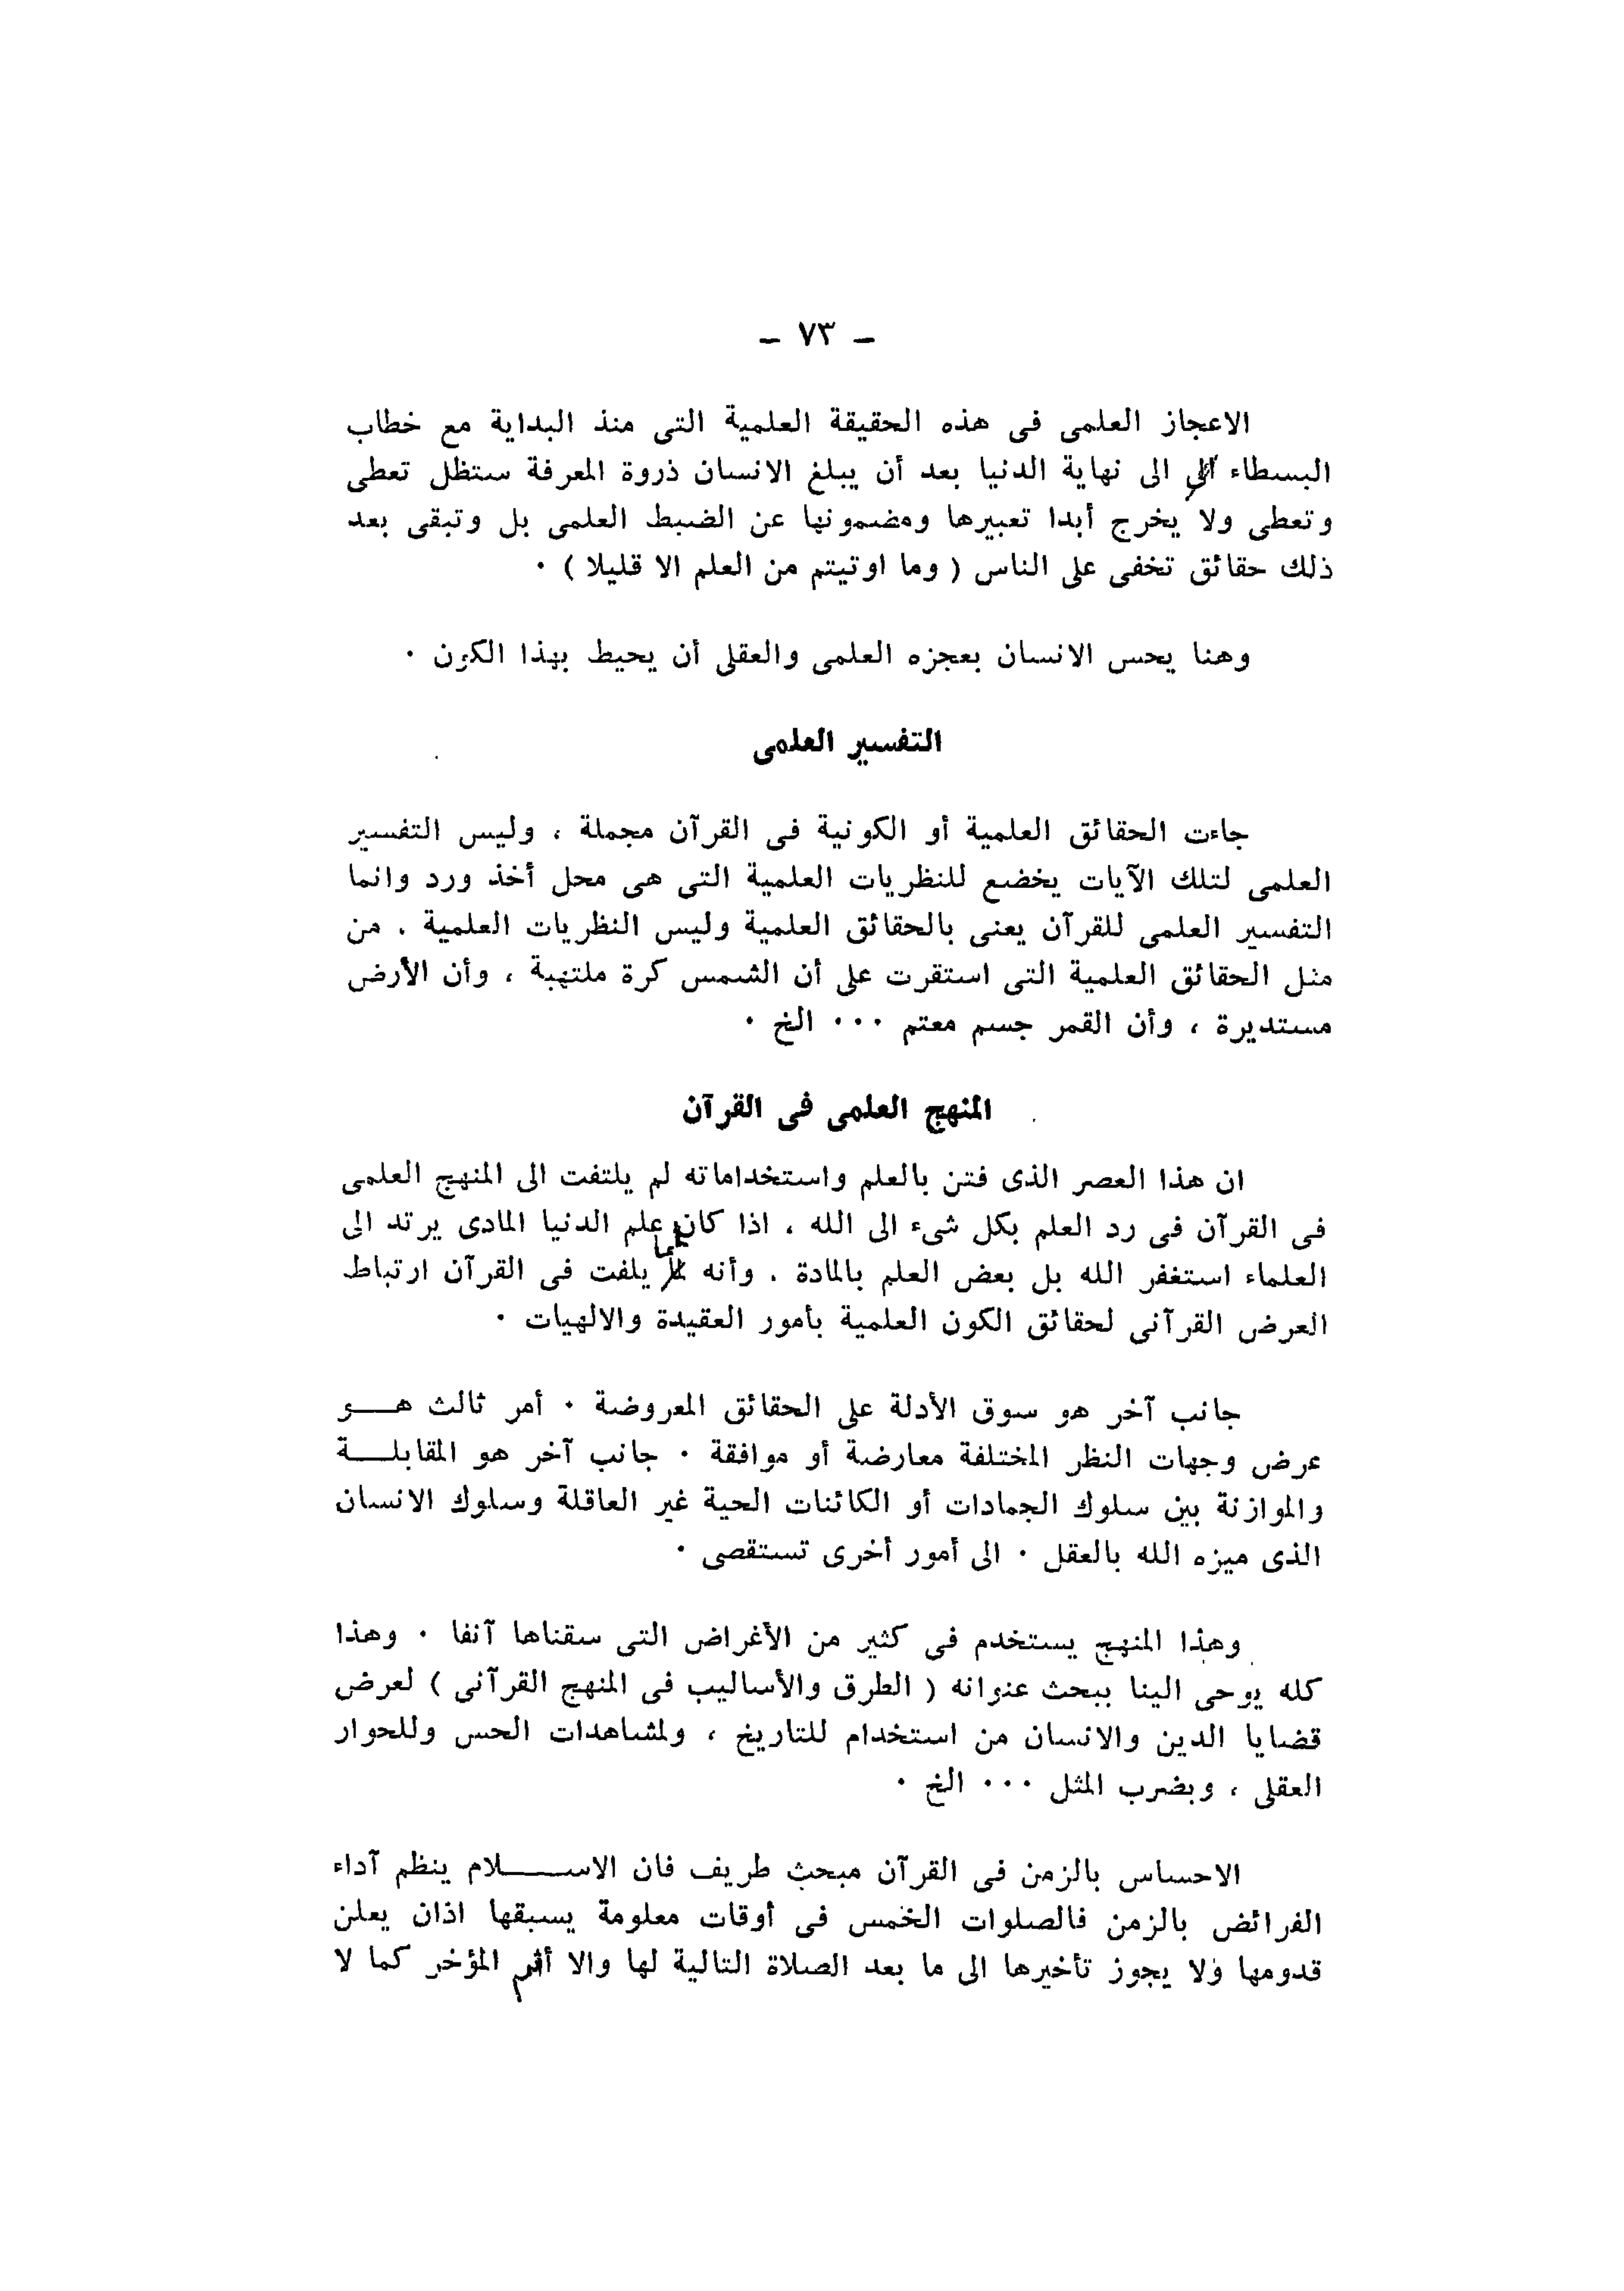 ـ ٧٣ ـ
الاعجاز العلمى فى هذه الحقيقة العلمية التى منذ البداية مع خطاب
البسطاء الى نهاية الدنيا بعد أن يبلغ الانسان ذروة المعرفة ستظل تعطى
وتعطى ولا يخرج أبدا تعبيرها ومضمونها عن الضبط العلمى بل وتبقى بعد
ذلك حقائق تخفى على الناس ( وما اوتيتم من العلم الا قليلا ) ٠
وهنا يحس الانسان بعجزه العلمى والعقلى أن يحيط بهذا الكون ٠
التفسير العلمى
جاءت الحقائق العلمية أو الكونية فى القرآن مجملة ، وليس التفسير
العلمى لتلك الآيات يخضع للنظريات العلمية التى هى محل أخذ ورد وانما
التفسير العلمى للقرآن يعنى بالحقائق العلمية وليس النظريات العلمية . من
مثل الحقائق العلمية التى استقرت على أن الشمس كرة ملتهبة ، وأن الأرض
مستديرة ، وأن القمر جسم معتم ٠٠٠ الخ ٠
المنهج العلمى فى القرآن
ان هذا العصر الذى فتن بالعلم واستخداماته لم يلتفت الى المنهج العلمى
فى القرآن فى رد العلم بكل شىء الى الله ، اذا كان علم الدنيا المادى يرتد الى
العلماء استغفر الله بل بعض العلم بالمادة . وأنه يلفت فى القرآن ارتباط
العرض القرآنى لحقائق الكون العلمية بأمور العقيدة والالهيات ٠
جانب آخر هو سوق الأدلة على الحقائق المعروضة ٠ أمر ثالث هـــو
عرض وجهات النظر المختلفة معارضة أو موافقة ٠ جانب آخر هو المقابلـــة
والموازنة بين سلوك الجمادات أو الكائنات الحية غير العاقلة وسلوك الانسان
الذى ميزه الله بالعقل ٠ الى أمور أخرى تستقصى ٠
وهذا المنهج يستخدم فى كثير من الأغراض التى سقناها آنفا ٠ وهذا
كله يوحى الينا ببحث عنوانه ( الطرق والأساليب فى المنهج القرآنى ) لعرض
قضايا الدين والانسان من استخدام للتاريخ ، ولمشاهدات الحس وللحوار
العقلى ، وبضرب المثل ٠٠٠ الخ ٠
الاحساس بالزمن فى القرآن مبحث طريف فان الاســـــلام ينظم آداء
الفرائض بالزمن فالصلوات الخمس فى أوقات معلومة يسبقها اذان يعلن
قدومها ولا يجوز تأخيرها الى ما بعد الصلاة التالية لها والا أثم المؤخر كما لا